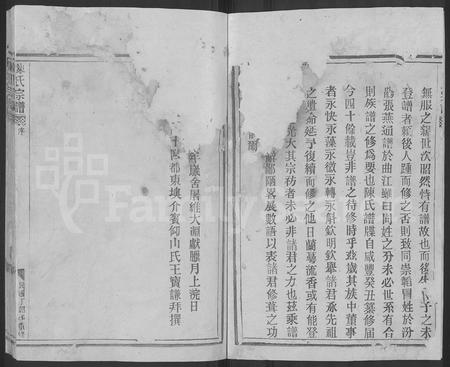 無服之親世次昭然恃有譜故也而後生小子之未
登譜者賴後人踵而修之否則致同崇韜冒姓於汾
陽張燕通譜於曲江雖曰同姓之分未必世系有合
則族譜之修爲要也陳氏譜牒自咸豐癸丑纂修屆
今四十餘載豈非譜之待修時乎歲其族中董事
者永快永藻永徵永轉永斛欽明欽舉諸君承先祖
之遺命延予復續而修之他日蘭蓀流香或有能登
光大其宗祊者未必非諸君之力也茲乘譜
鄙陋畧展數語以表諸君修葺之功
年歲舍屠維大淵獻臘月上浣日
十四都東墺介賓仰山氏王寶謙拜撰
陳氏宗譜
序